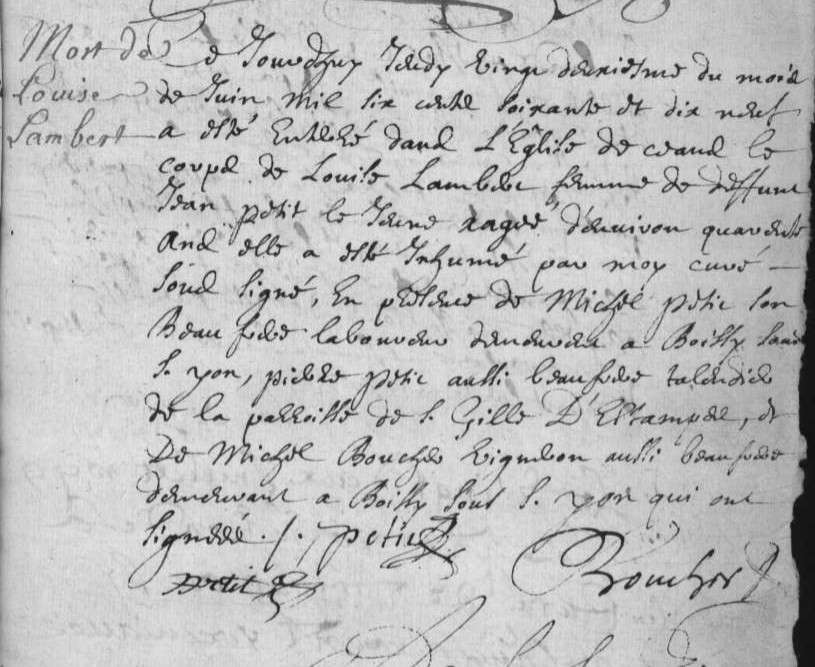 Mort de
Louise
Lambert
Ce Jourdhuy Jeudy vingt deuxiesme du mois
de Juin mil six cents soixante et dix neuf
a esté Enterré dans L'Eglise de ceans le
corps de Louise Lambert femme de deffunt
Jean petit le Jeune aagée d'environ quarente
Ans elle a esté Inhumé par moy curé
sous signé, En presence de Michel petit son
Beau frere laboureur demeurant a Boissy sous
S. yon, pierre petit aussi beau frere
de la parroisse de S. Gille D'Estampes, et
De Michel Boucher vigneron aussi beau frere
demeurant a Boissy sous S. yon qui ont
signéés ./. petit
Boucher
petit